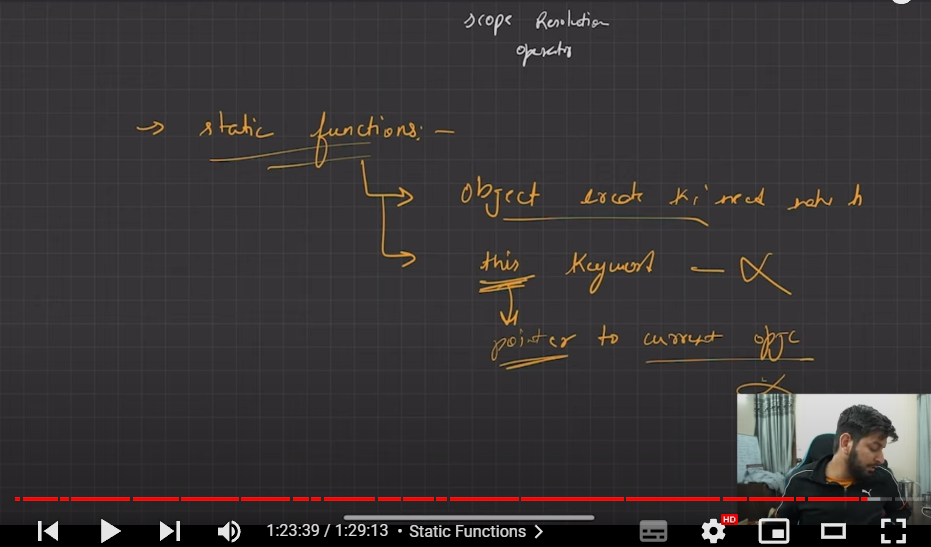 scope Resolution
operator
→ static functions: —
object create ki need nahi h
this keyword —
pointer to current objc
HD
1:23:39 / 1:29:13 • Static Functions >